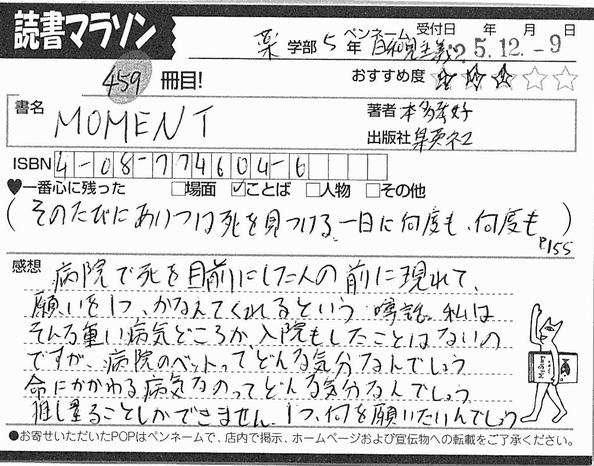 読書マラソン
薬 学部 5 年 ペンネーム 自和見主義? 受付日 年 月 日
5.12.-9
459 冊目!
おすすめ度 ★★★☆☆
書名 MOMENT
著者 本多孝好
出版社 集英社
ISBN 4-08-774604-6
♥一番心に残った □場面 ☑ことば □人物 □その他
(そのたびにあいつは死を見つける。一日に何度も、何度も)
P155
感想
病院で死を目前にした人の前に現れて、
願いを1つ、かなえてくれるという噂話。私は
そんな重い病気どころか、入院もしたことはないの
ですが、病院のベットってどんな気分なんでしょう
命にかかわる病気なのってどんな気分なんでしょう
推し量ることしかできません。1つ、何を願いたいんでしょう
●お寄せいただいたPOPはペンネームで、店内で掲示、ホームページおよび宣伝物への転載をご了承ください。